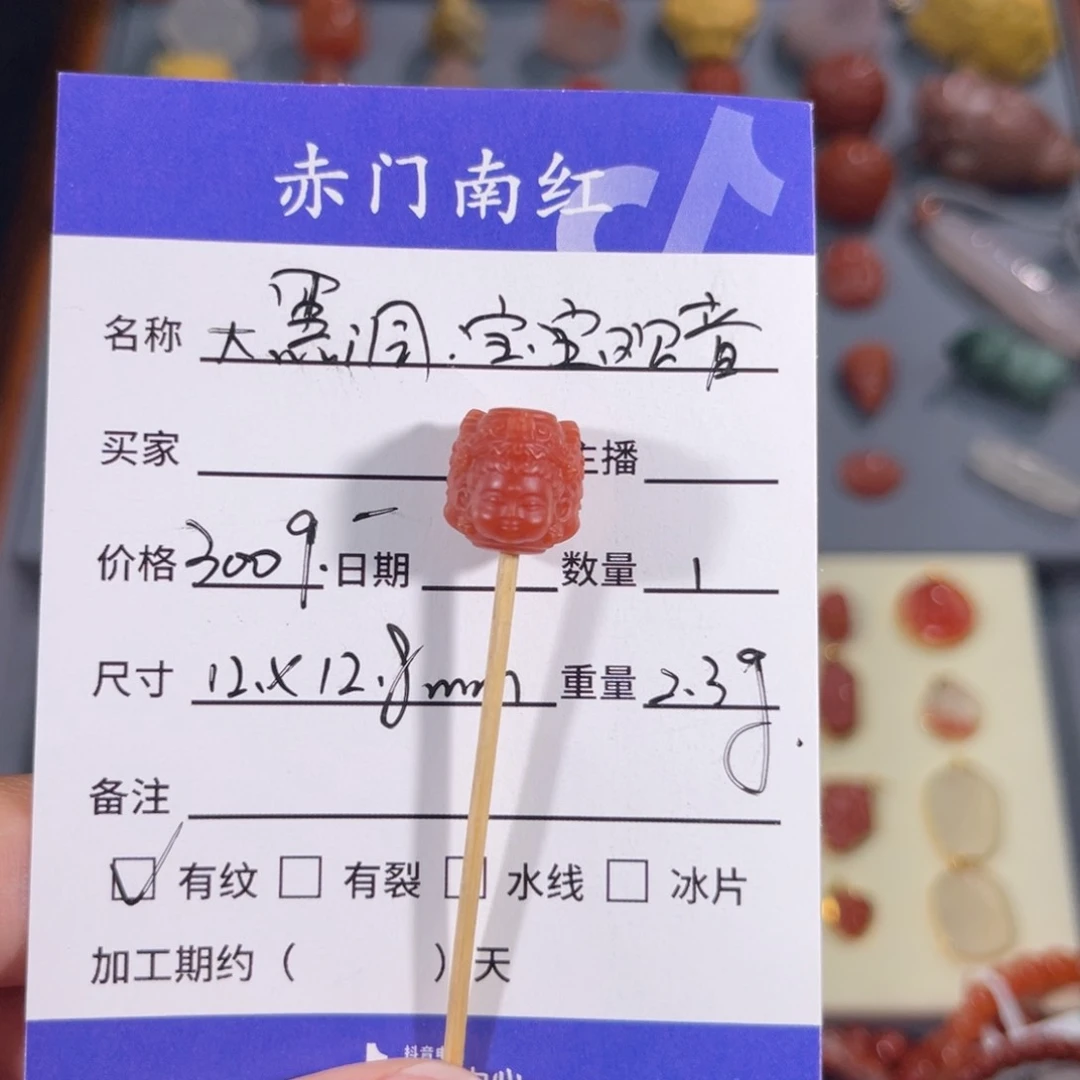 赤门南红
名称 大黑洞.宝宝观音
买家 主播
价格 3009.- 日期 数量 1
尺寸 12.X12.8mm 重量 2.3g.
备注
有纹 有裂 水线 冰片
加工期约（ ）天
抖音电